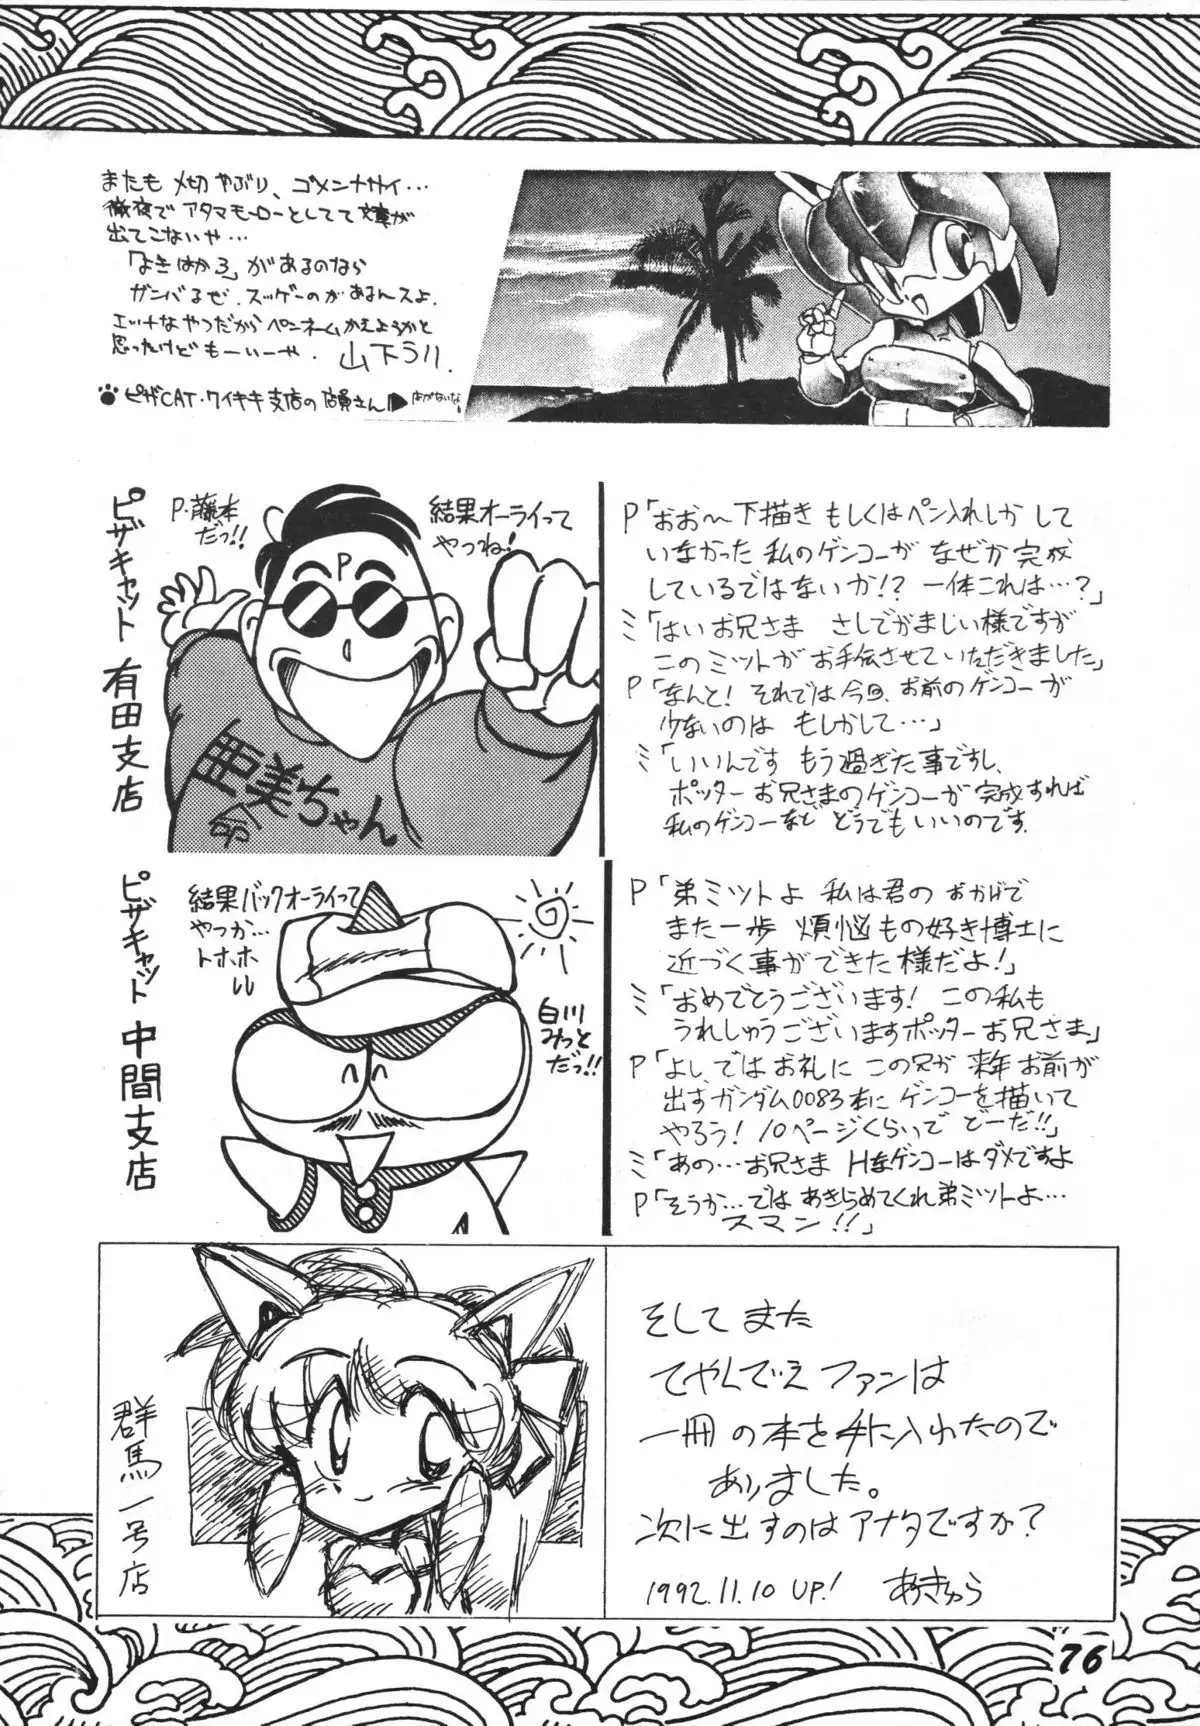 またも〆切やぶり、ゴメンナサイ…
徹夜でアタマモーローとしてて文章が
出てこないや…
「よきはかろ」があるのなら
ガンバるぜ.スッゲーのがあるんスよ.
エッチなやつだからペンネームかえようかと
思ったけどもーいーや. 山下うり
ピザCAT・ワイキキ支店の店員さん▶
はがないな。
ピザキャット 有田支店
P・藤本
だっ!!
結果オーライって
やつね!
P
亜美ちゃん
命
P「おお〜下描きもしくはペン入れしかして
いなかった私のゲンコーがなぜか完成
しているではないか!? 一体これは…?」
ミ「はいお兄さま さしでがましい様ですが
このミットがお手伝させていただきました」
P「なんと! それでは今回、お前のゲンコーが
少ないのは もしかして…」
ミ「いいんです もう過ぎた事ですし、
ポッターお兄さまのゲンコーが完成すれば
私のゲンコーなど どうでもいいのです.
ピザキャット 中間支店
結果バックオーライって
やつか…
トホホ
白川
みっと
だっ!!
P「弟ミットよ 私は君のおかげで
また一歩 煩悩もの好き博士に
近づく事ができた様だよ!」
ミ「おめでとうございます! この私も
うれしゅうございますポッターお兄さま」
P「よし、ではお礼に この兄が来年お前が
出すガンダム0083本にゲンコーを描いて
やろう! 10ページくらいでどーだ!!」
ミ「あの…お兄さま Hなゲンコーはダメですよ
P「そうか…ではあきらめてくれ弟ミットよ…
スマン!!」
群馬一号店
そしてまた
てやんでえファンは
一冊の本を手に入れたので
ありました。
次に出すのはアナタですか?
1992.11.10 UP! あきゅら
76